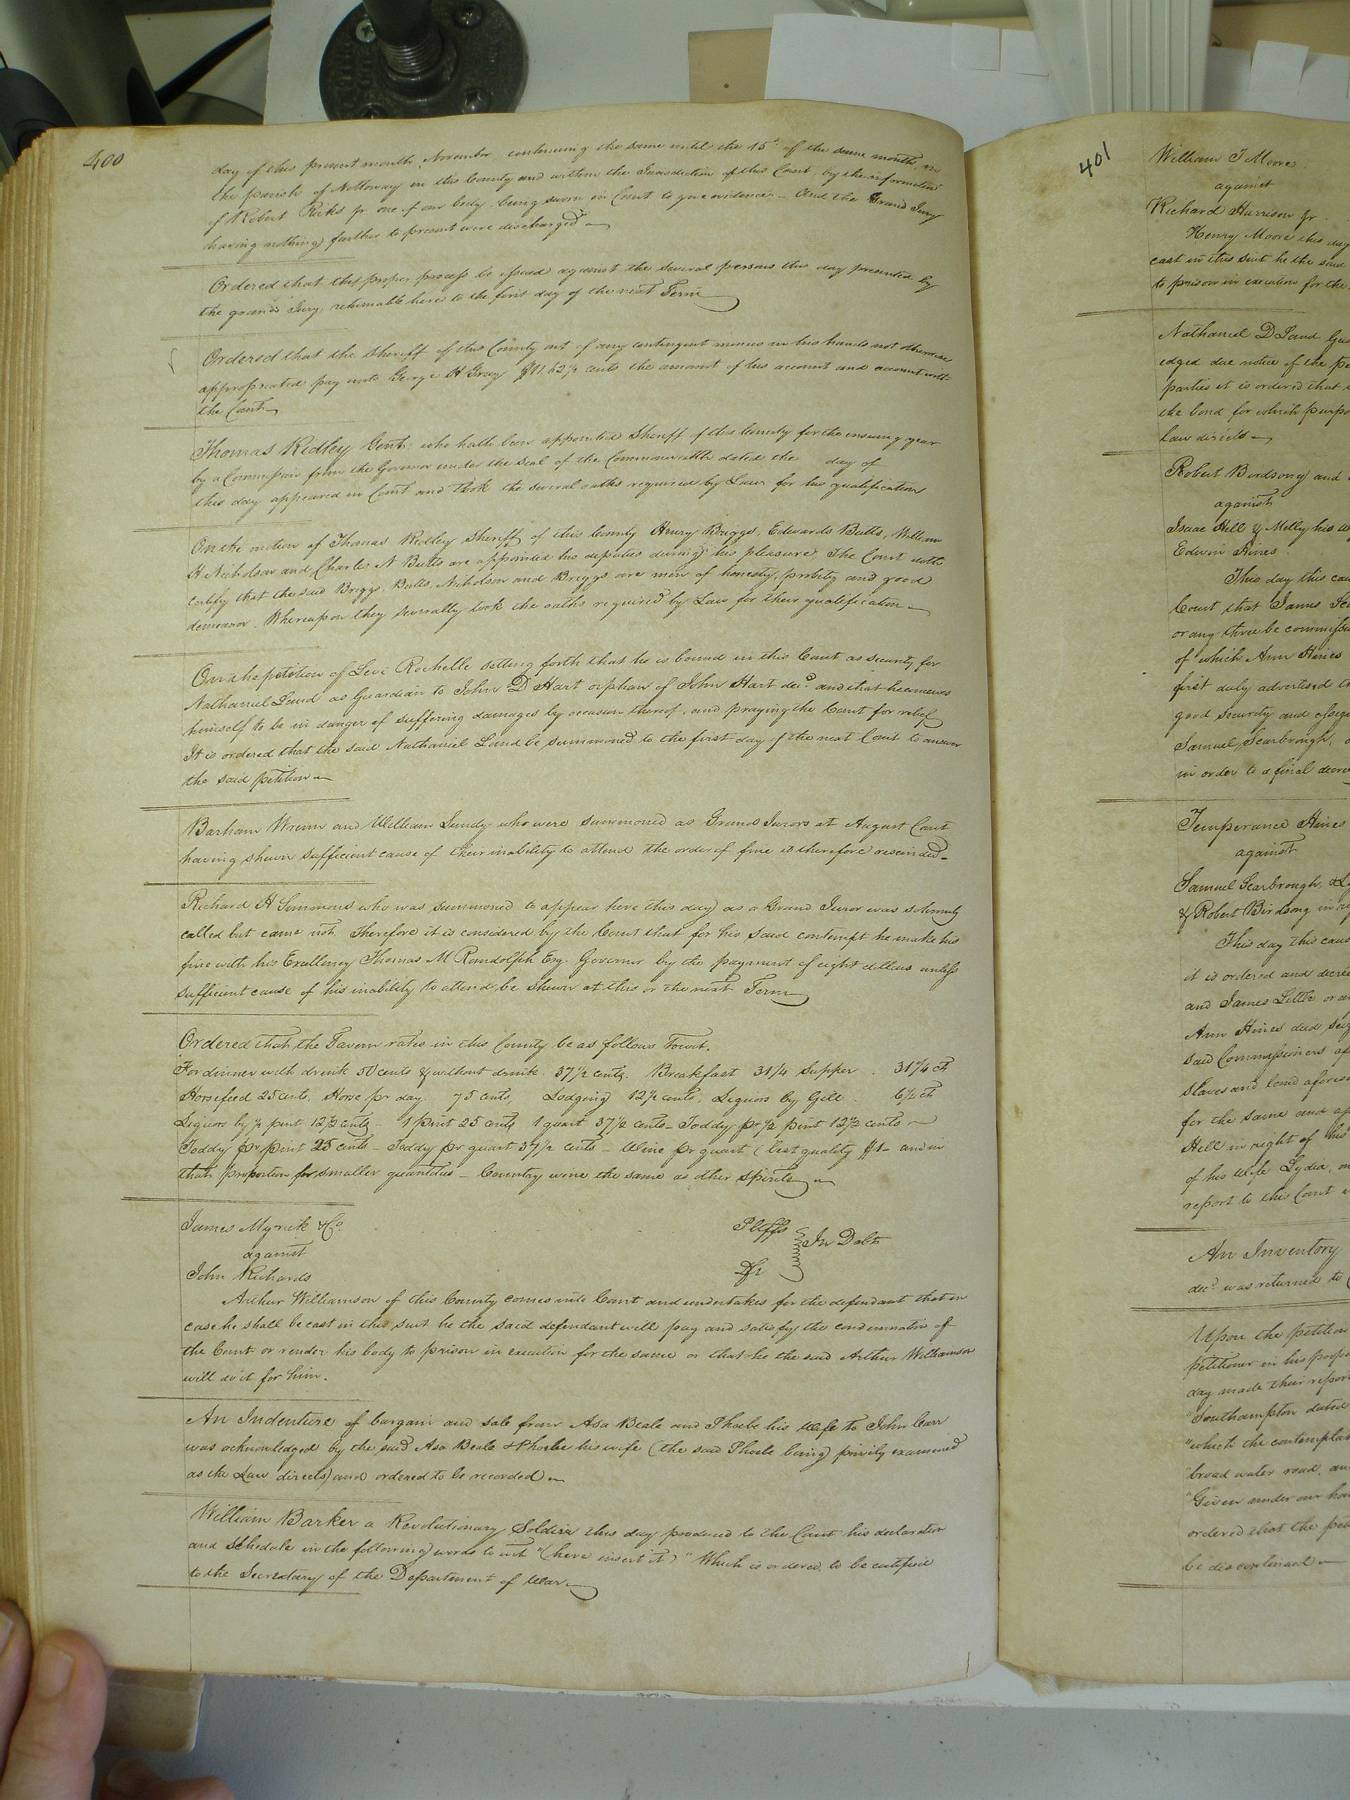 400
day of this present month November continuing the same until the 15th of the same month, in
the parish of Nottoway in this County and within the Jurisdiction of this Court, by the information
of Robert Ricks jr one of our body being sworn in Court to give evidence - And the Grand Jury
having nothing further to present were discharged
Ordered that the proper process be issued against the several persons this day presented by
the grand Jury returnable here to the first day of the next Term
Ordered that the Sheriff of this County out of any contingent monies in his hands not otherwise
appropriated pay unto George H Gray 62½ cents the amount of his account and account with
the Court
Thomas Ridley Gent. who hath been appointed Sheriff of this County for the ensuing year
by a Commission from the Governor under the Seal of the Commonwealth dated the day of
this day appeared in Court and took the several oaths required by Law for his qualification
On the motion of Thomas Ridley Sheriff of this County Henry Briggs, Edwards Butts, William
H Nicholson and Charles A Butts are appointed his deputies during his pleasure, The Court doth
certify that the said Briggs, Butts, Nicholson and Briggs are men of honesty, probity and good
demeanor. Whereupon they severally took the oaths required by Law for their qualification
On the petition of Levi Rochelle setting forth that he is bound in this Court as security for
Nathaniel Land as Guardian to John D Hart orphan of John Hart decd. and that he conceives
himself to be in danger of suffering damages by occasion thereof, and praying the Court for relief
It is ordered that the said Nathaniel Land be summoned to the first day of the next Court to answer
the said petition
Barham Wrenn and William Lundy who were summoned as Grand Jurors at August Court
having shewn sufficient cause of their inability to attend the order of fine is therefore rescinded
Richard H Simmons who was summoned to appear here this day as a Grand Juror was solemnly
called but came not. Therefore it is considered by the Court that for his said contempt he make his
fine with his Excellency Thomas M Randolph Esq. Governor by the payment of eight dollars unless
sufficient cause of his inability to attend be shewn at this or the next Term
Ordered that the Tavern rates in this County be as follows Towit.
For dinner with drink 50 cents & without drink 37½ cents. Breakfast 31¼ Supper 31¼ ct
Horsefeed 25 cents, Horse pr day 75 cents, Lodging 12½ cents, Liquors by Gill 6¼ ct
Liquors by ½ pint 12½ cents - 1 pint 25 cents 1 quart 37½ cents - Toddy pr ½ pint 12½ cents
Toddy pr pint 25 cents - Toddy pr quart 37½ cents - Wine pr quart (best quality $1 - and in
that proportion for smaller quantities - Country wine the same as other spirits
James Myrick & Co. Pltffs
against In Debt
John Richards Dft
Arthur Williamson of this County comes into Court and undertakes for the defendant that in
case he shall be cast in this suit he the said defendant will pay and satisfy the condemnation of
the Court or render his body to prison in execution for the same or that he the said Arthur Williamson
will do it for him.
An Indenture of bargain and sale from Asa Beale and Phoebe his wife to John Carr
was acknowledged by the said Asa Beale & Phoebe his wife (the said Phoebe being privily examined
as the Law directs) and ordered to be recorded
William Barker a Revolutionary Soldier this day produced to the Court his declaration
and Schedule in the following words to wit "(here insert it)" Which is ordered to be certified
to the Secretary of the Department of War
401
William T Moore
against
Richard Harrison Jr.
Henry Moore this day
cast in this suit he the said
to prison in execution for the
Nathaniel D Land
edged due notice of the
parties it is ordered that
the bond for which purpo
Law directs
Robert Birdsong and
against
Isaac Hill & Melly his
Edwin Hines
This day this cau
Court that James
or any three be commiss
of which Ann Hines
first duly advertised
good security and assign
Samuel Scarbrough,
in order to a final decree
Temperance Hines
against
Samuel Scarbrough, & Ly
& Robert Birdsong
This day this caus
it is ordered and decree
and James Little or
Ann Hines decd
said Commissioners
slaves and land afores
for the same and
Hill in right of his
of his wife Lydia,
report to this Court
An Inventory
decd. was returned to
Upon the petition
petitioner in his propo
day made their report
"Southampton dated
"which the contempla
"broad water road, an
"Given under our han
ordered that the pet
be discontinued